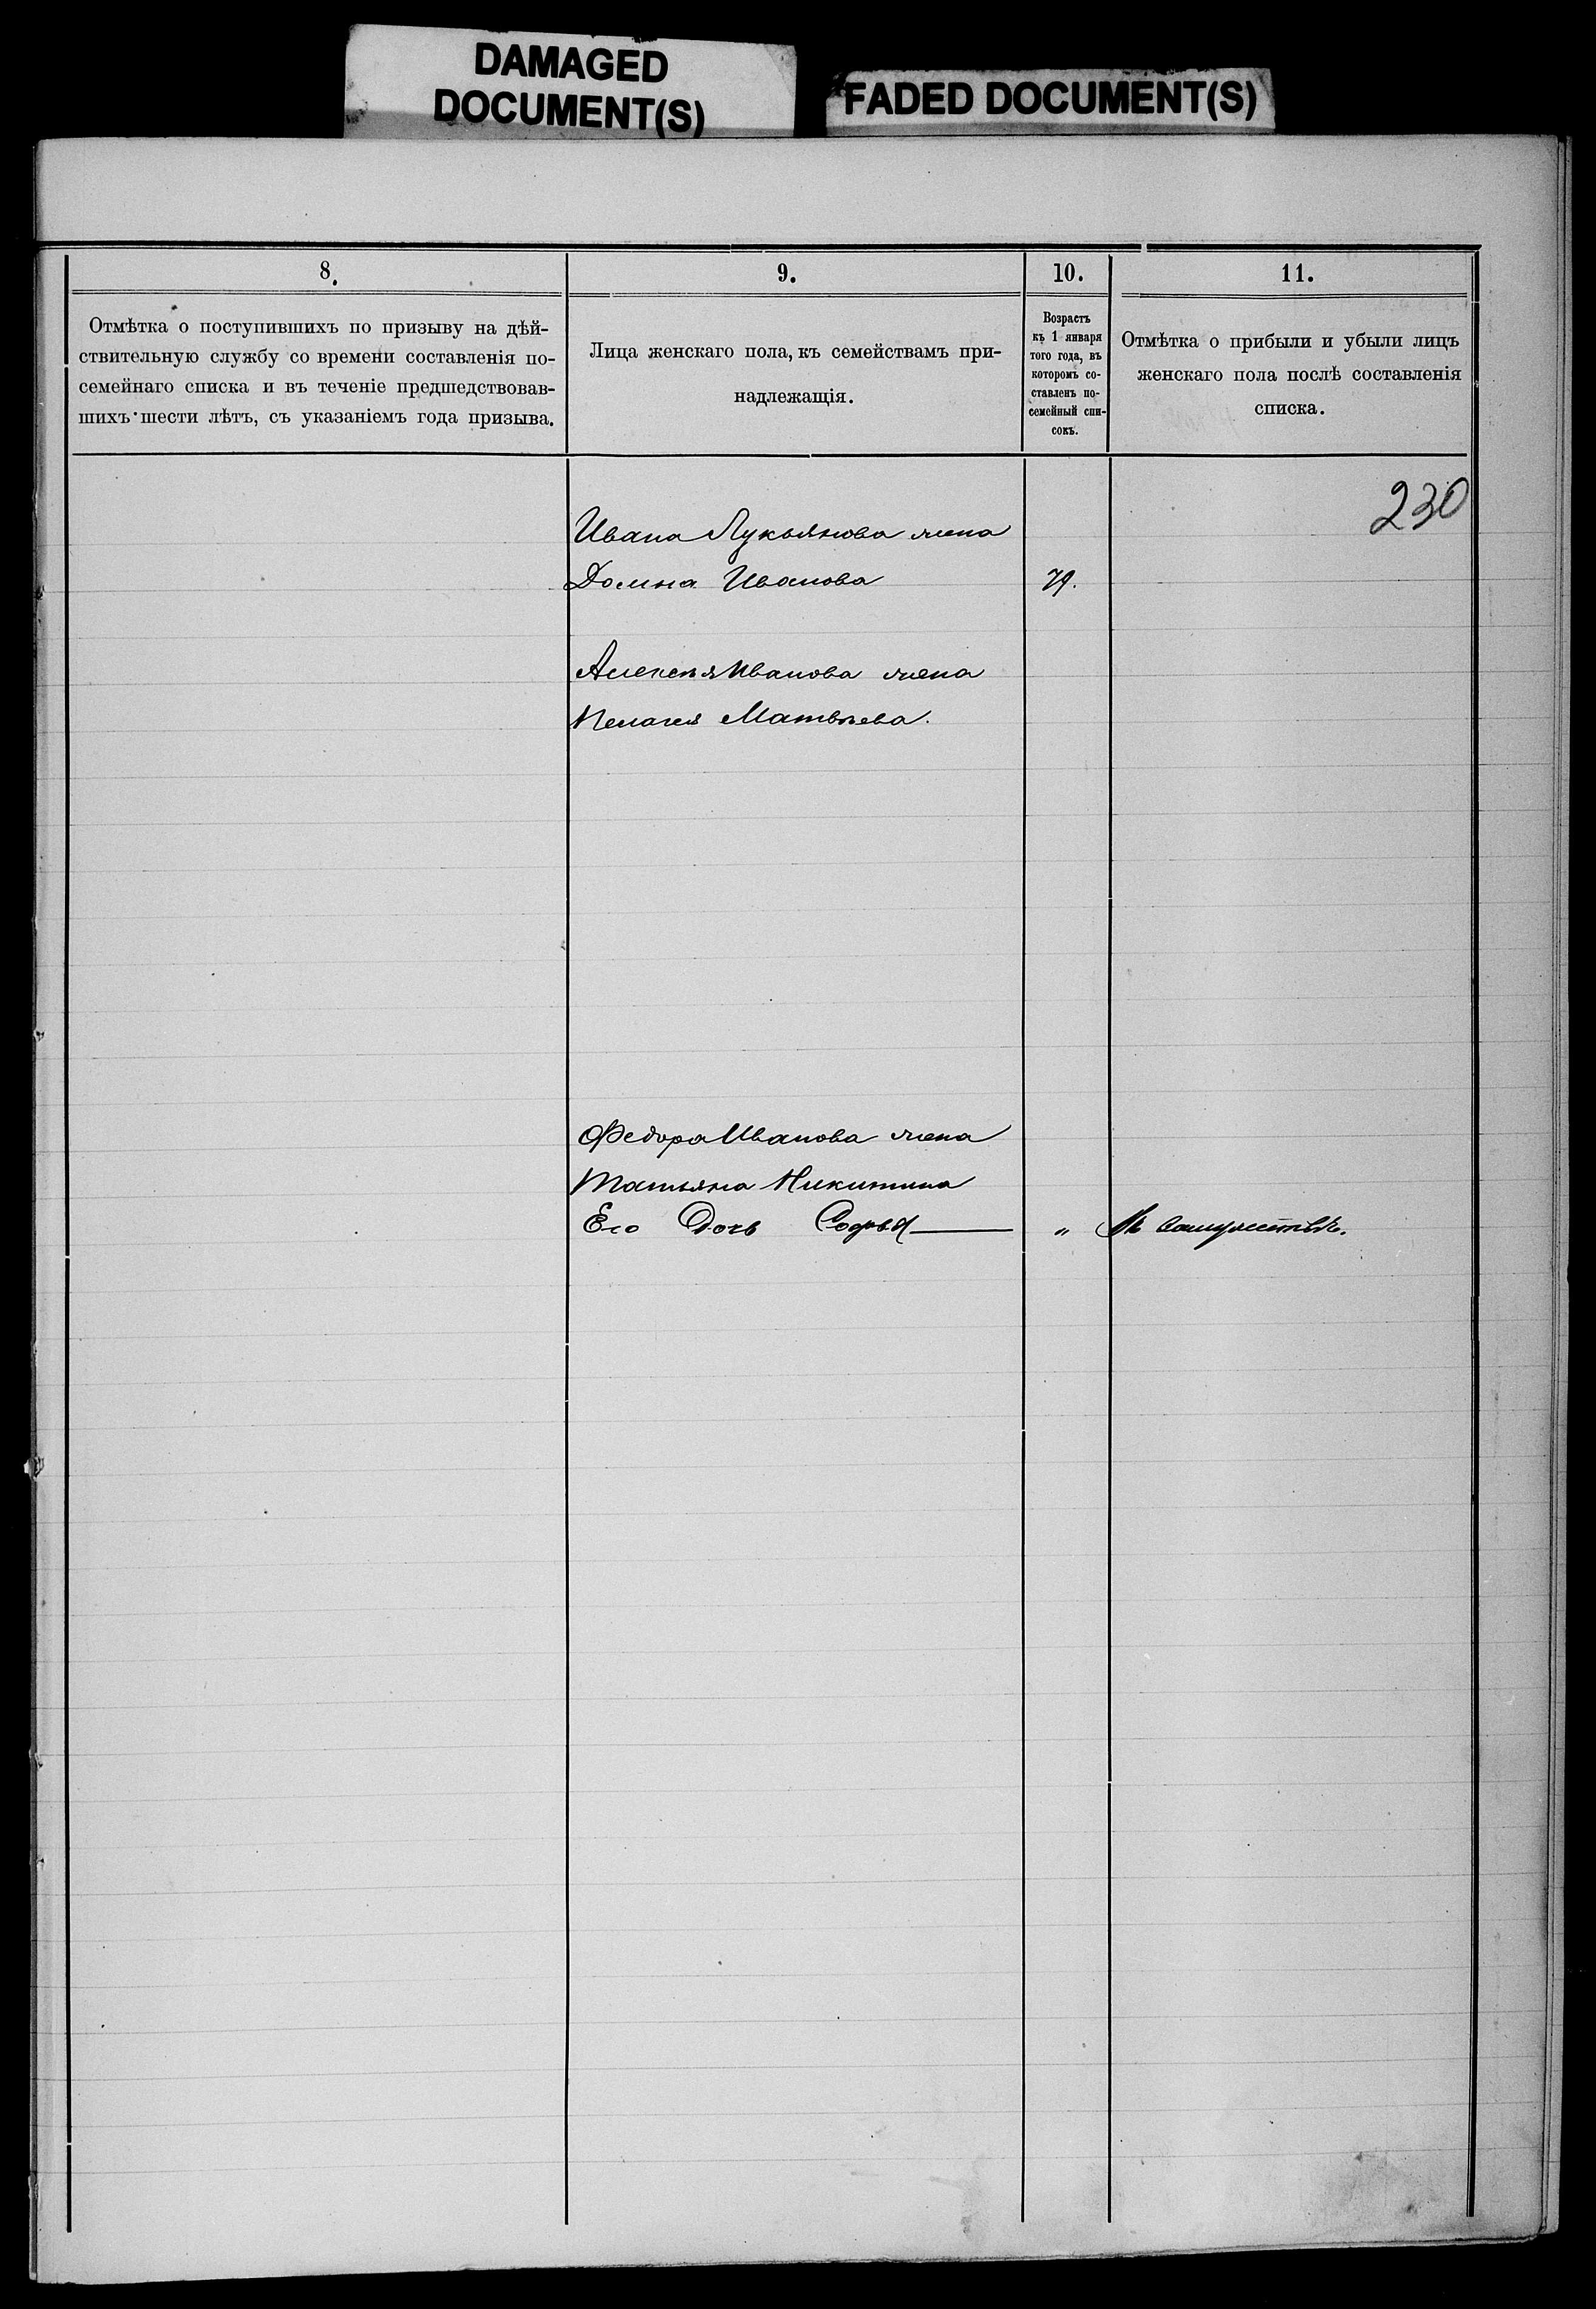 DAMAGED
DOCUMENT(S)
FADED DOCUMENT(S)
8.
Отмѣтка о поступившихъ по призыву на дѣй-
ствительную службу со времени составленія по-
семейнаго списка и въ теченіе предшедствовав-
шихъ шести лѣтъ, съ указаніемъ года призыва.
9.
Лица женскаго пола, къ семействамъ при-
надлежащія.
10.
Возрастъ
къ 1 января
того года, въ
которомъ со-
ставленъ по-
семейный спи-
сокъ.
11.
Отмѣтка о прибыли и убыли лицъ
женскаго пола послѣ составленія
списка.
230
Ивана Лукьянова жена
Домна Иванова 79.
Алексѣя Иванова жена
Пелагея Матвѣева.
Федора Иванова жена
Татьяна Никитина
Его Дочь Софья „ Въ Замужествѣ.